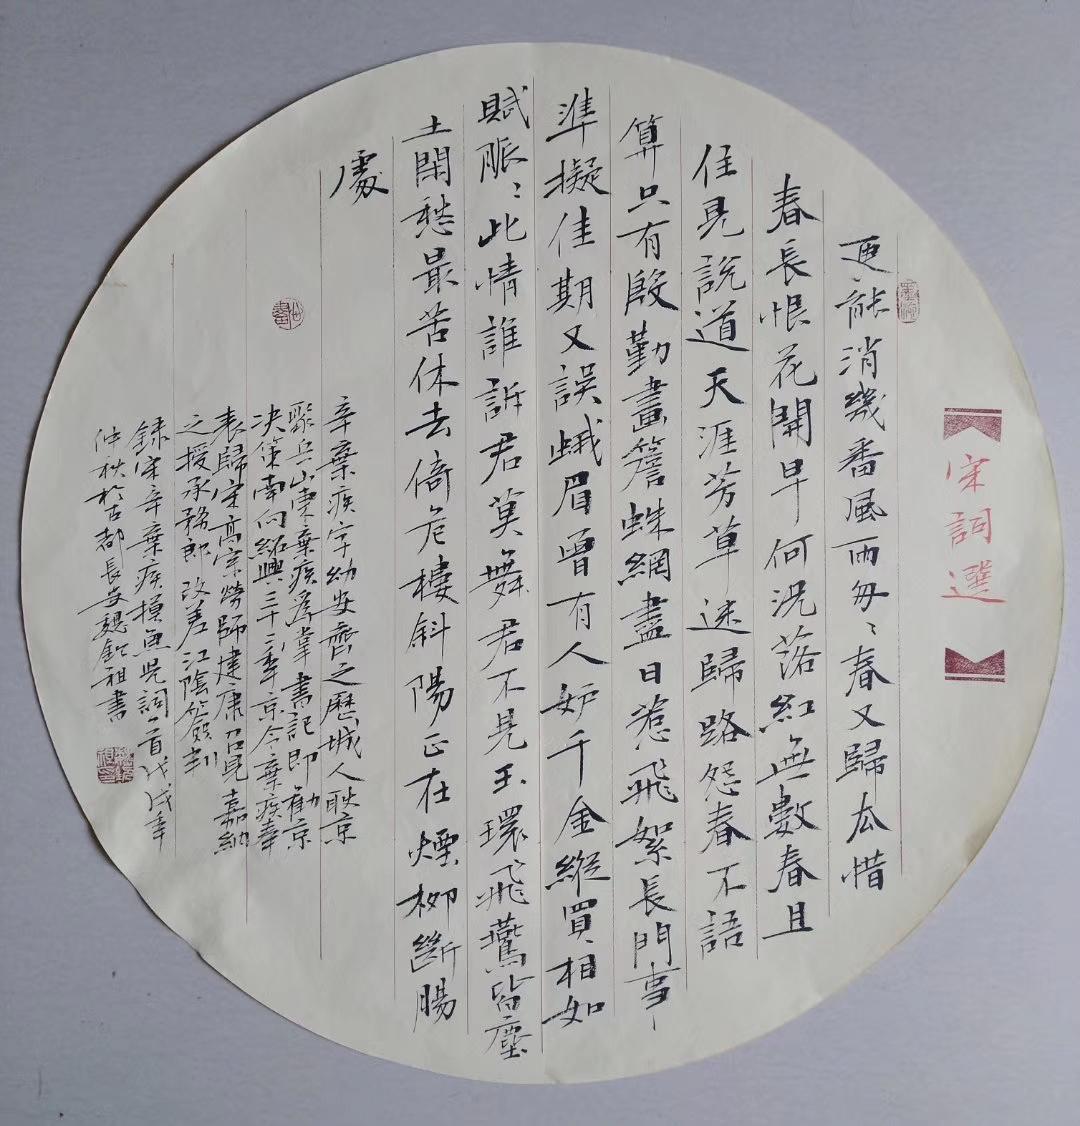 宋詞選
更能消幾番風雨匆〻春又歸去惜
春長恨花開早何況落紅無數春且
住見說道天涯芳草迷歸路怨春不語
算只有殷勤畫簷蛛網盡日惹飛絮長門事
準擬佳期又誤蛾眉曾有人妒千金縱買相如
賦脈〻此情誰訴君莫舞君不見玉環飛燕皆塵
土閑愁最苦休去倚危樓斜陽正在煙柳斷腸
處
辛棄疾字幼安齊之歷城人耿京
聚兵山東棄疾為掌書記即勸京
決策南向紹興三十二年京令棄疾奉
表歸宋高宗勞師建康召見嘉納
之授承務郎改差江陰簽判
錄宋辛棄疾摸魚兒詞一首戊戌年
仲秋於古都長安祖書